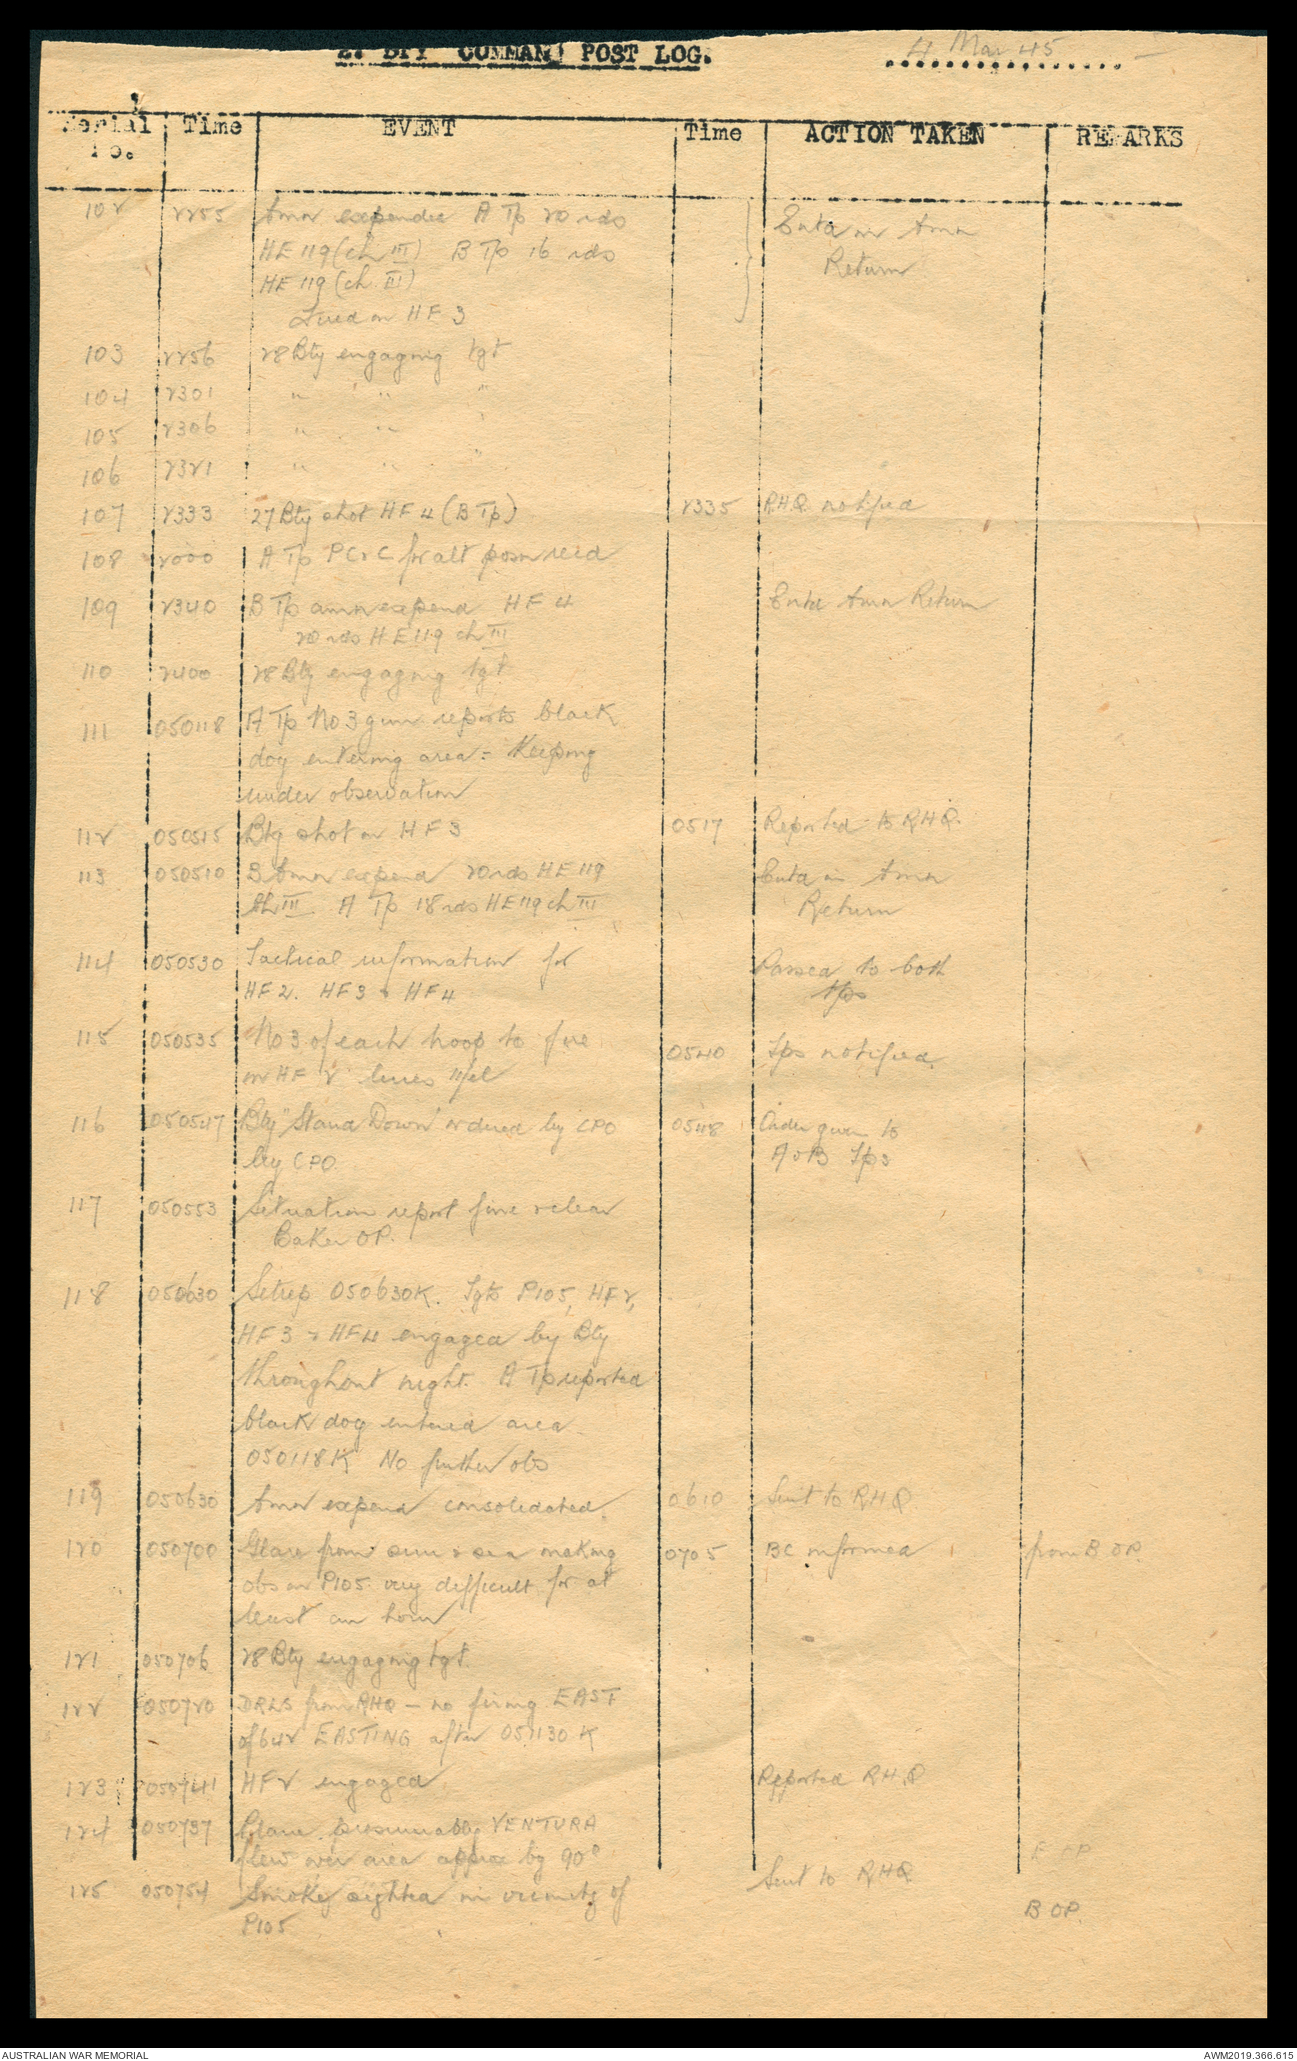 BTY COMMAND POST LOG. 4 Mar 45
Serial No. Time EVENT Time ACTION TAKEN REMARKS
102 2255 Amn expended A Tp 20 rds Enta in Amn
HE 119 (ch III) B Tp 16 rds Return
HE 119 (ch III)
Fired on HF 3
103 2256 28 Bty engaging tgt
104 2301 " " "
105 2306 " " "
106 2321 " " "
107 2333 27 Bty shot HF 4 (B Tp) 2335 RHQ notified
108 2000 A Tp PC & C for alt posn recd
109 2340 B Tp amn expend HF 4 Enta Amn Return
20 rds HE 119 ch III
110 2400 28 Bty engaging tgt
111 050118 A Tp No 3 gun reports black
dog entering area = Keeping
under observation
112 050515 Bty shot on HF 3 0517 Reported to RHQ.
113 050510 B Amn expend 20 rds HE 119 Enta in Amn
ch III A Tp 18 rds HE 119 ch III Return
114 050530 Tactical information for Passed to both
HF 2. HF 3 & HF 4 tps
115 050535 No 3 of each troop to fire 0540 Tps notified
on HF 2 lines
116 050547 Bty "Stand Down" ordered by CPO 0548 Order given to
by CPO. A & B Tps
117 050553 Situation report fine & clear
Baker OP.
118 050630 Sitrep 050630K. Tgts P105, HF 2,
HF 3 & HF 4 engaged by Bty
throughout night. A Tp reported
black dog entered area
050118K No further obs
119 050630 Amn expend consolidated. 0610 Sent to RHQ.
120 050700 Glare from sun & sea making 0705 BC informed from B OP.
obs on P105 very difficult for at
least an hour
121 050706 28 Bty engaging tgt.
122 050720 DRLS from RHQ - no firing EAST
of 642 EASTING after 051130 K
123 050741 HF 2 engaged Reported RHQ
124 050737 Plane presumably VENTURA
flew over area approx by 90°
125 050754 Smoke sighted in vicinity of Sent to RHQ
P105 B OP.
AUSTRALIAN WAR MEMORIAL AWM2019.366.615